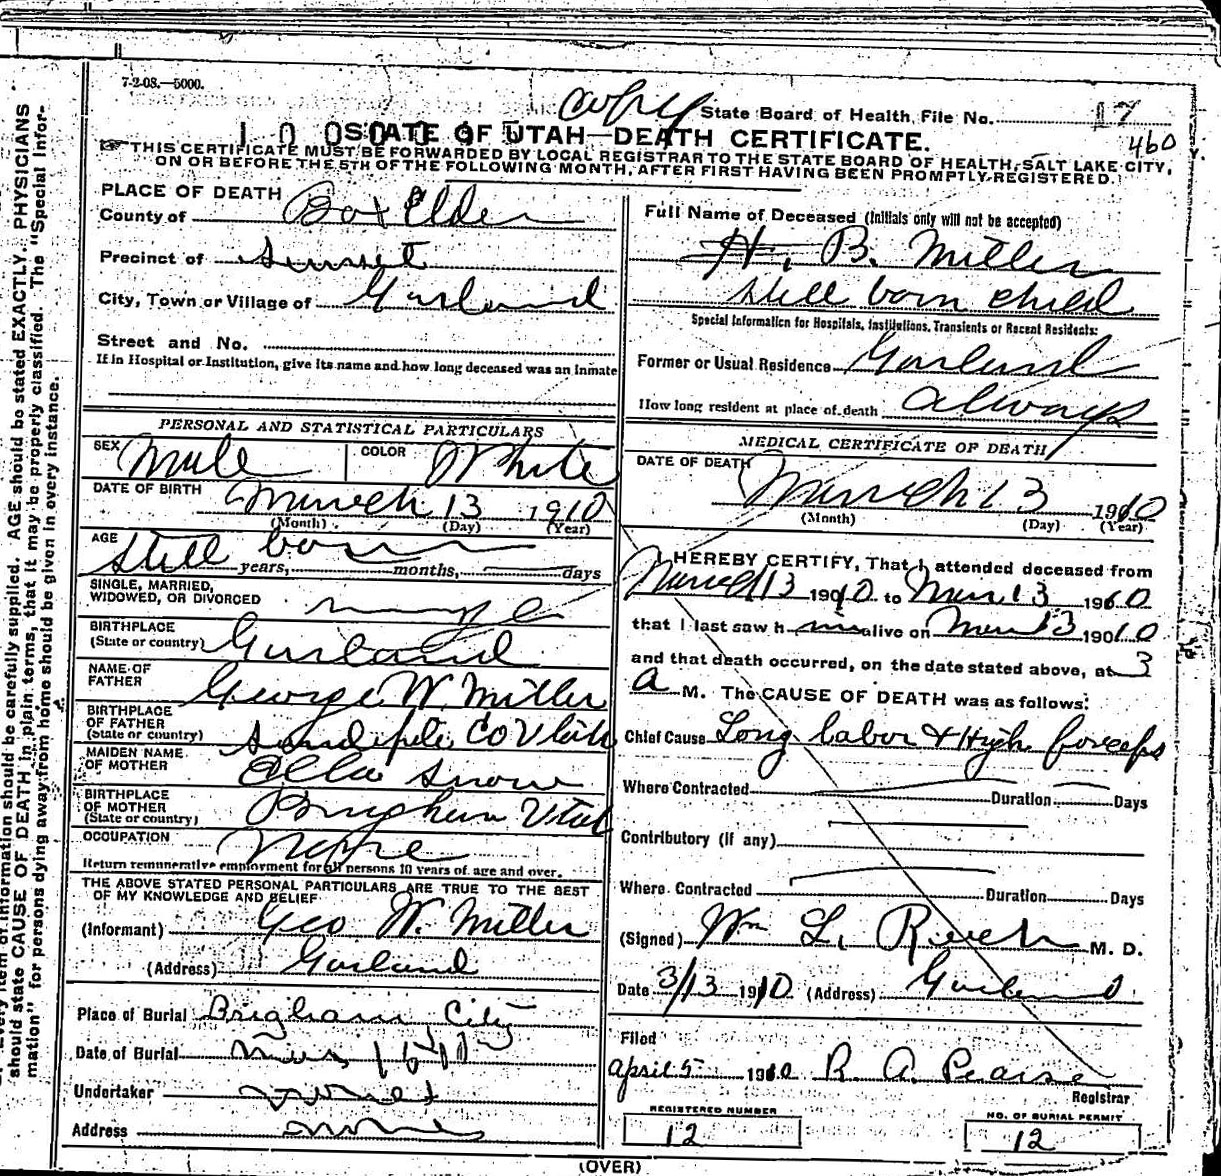 7-2-08.—5000.
copy State Board of Health, File No. 17
1 0 0
STATE OF UTAH—DEATH CERTIFICATE.
460
THIS CERTIFICATE MUST BE FORWARDED BY LOCAL REGISTRAR TO THE STATE BOARD OF HEALTH, SALT LAKE CITY,
ON OR BEFORE THE 5TH OF THE FOLLOWING MONTH, AFTER FIRST HAVING BEEN PROMPTLY REGISTERED.
PLACE OF DEATH
County of Box Elder
Precinct of Sunset
City, Town or Village of Garland
Street and No.
If in Hospital or Institution, give its name and how long deceased was an inmate
PERSONAL AND STATISTICAL PARTICULARS
SEX Male COLOR White
DATE OF BIRTH March 13 1910
(Month) (Day) (Year)
AGE still born
years, months, days
SINGLE, MARRIED,
WIDOWED, OR DIVORCED
BIRTHPLACE
(State or country) Garland
NAME OF
FATHER George W. Miller
BIRTHPLACE
OF FATHER
(State or country) Sandpete Co Utah
MAIDEN NAME
OF MOTHER Ella Snow
BIRTHPLACE
OF MOTHER
(State or country) Brigham Utah
OCCUPATION None
Return remunerative employment for all persons 10 years of age and over.
THE ABOVE STATED PERSONAL PARTICULARS ARE TRUE TO THE BEST
OF MY KNOWLEDGE AND BELIEF
(Informant) Geo W. Miller
(Address) Garland
Place of Burial Brigham City
Date of Burial Mar
Undertaker
Address none
Full Name of Deceased (Initials only will not be accepted)
H. B. Miller
still born child
Special Information for Hospitals, Institutions, Transients or Recent Residents:
Former or Usual Residence Garland
How long resident at place of death always
MEDICAL CERTIFICATE OF DEATH
DATE OF DEATH March 13 1910
(Month) (Day) (Year)
I HEREBY CERTIFY, That I attended deceased from
March 13 1910 to Mar 13 1910
that I last saw h alive on Mar 13 1910
and that death occurred, on the date stated above, at 3
a M. The CAUSE OF DEATH was as follows:
Chief Cause Long labor & High forceps
Where Contracted Duration Days
Contributory (if any)
Where Contracted Duration Days
(Signed) Wm L. M. D.
Date 3/13 1910 (Address) Garland
Filed
April 5 1910 R. A. Pearse
Registrar
REGISTERED NUMBER
12
NO. OF BURIAL PERMIT
12
(OVER)
Every item of information should be carefully supplied. AGE should be stated EXACTLY. PHYSICIANS
should state CAUSE OF DEATH in plain terms, that it may be properly classified. The "Special Infor-
mation" for persons dying away from home should be given in every instance.